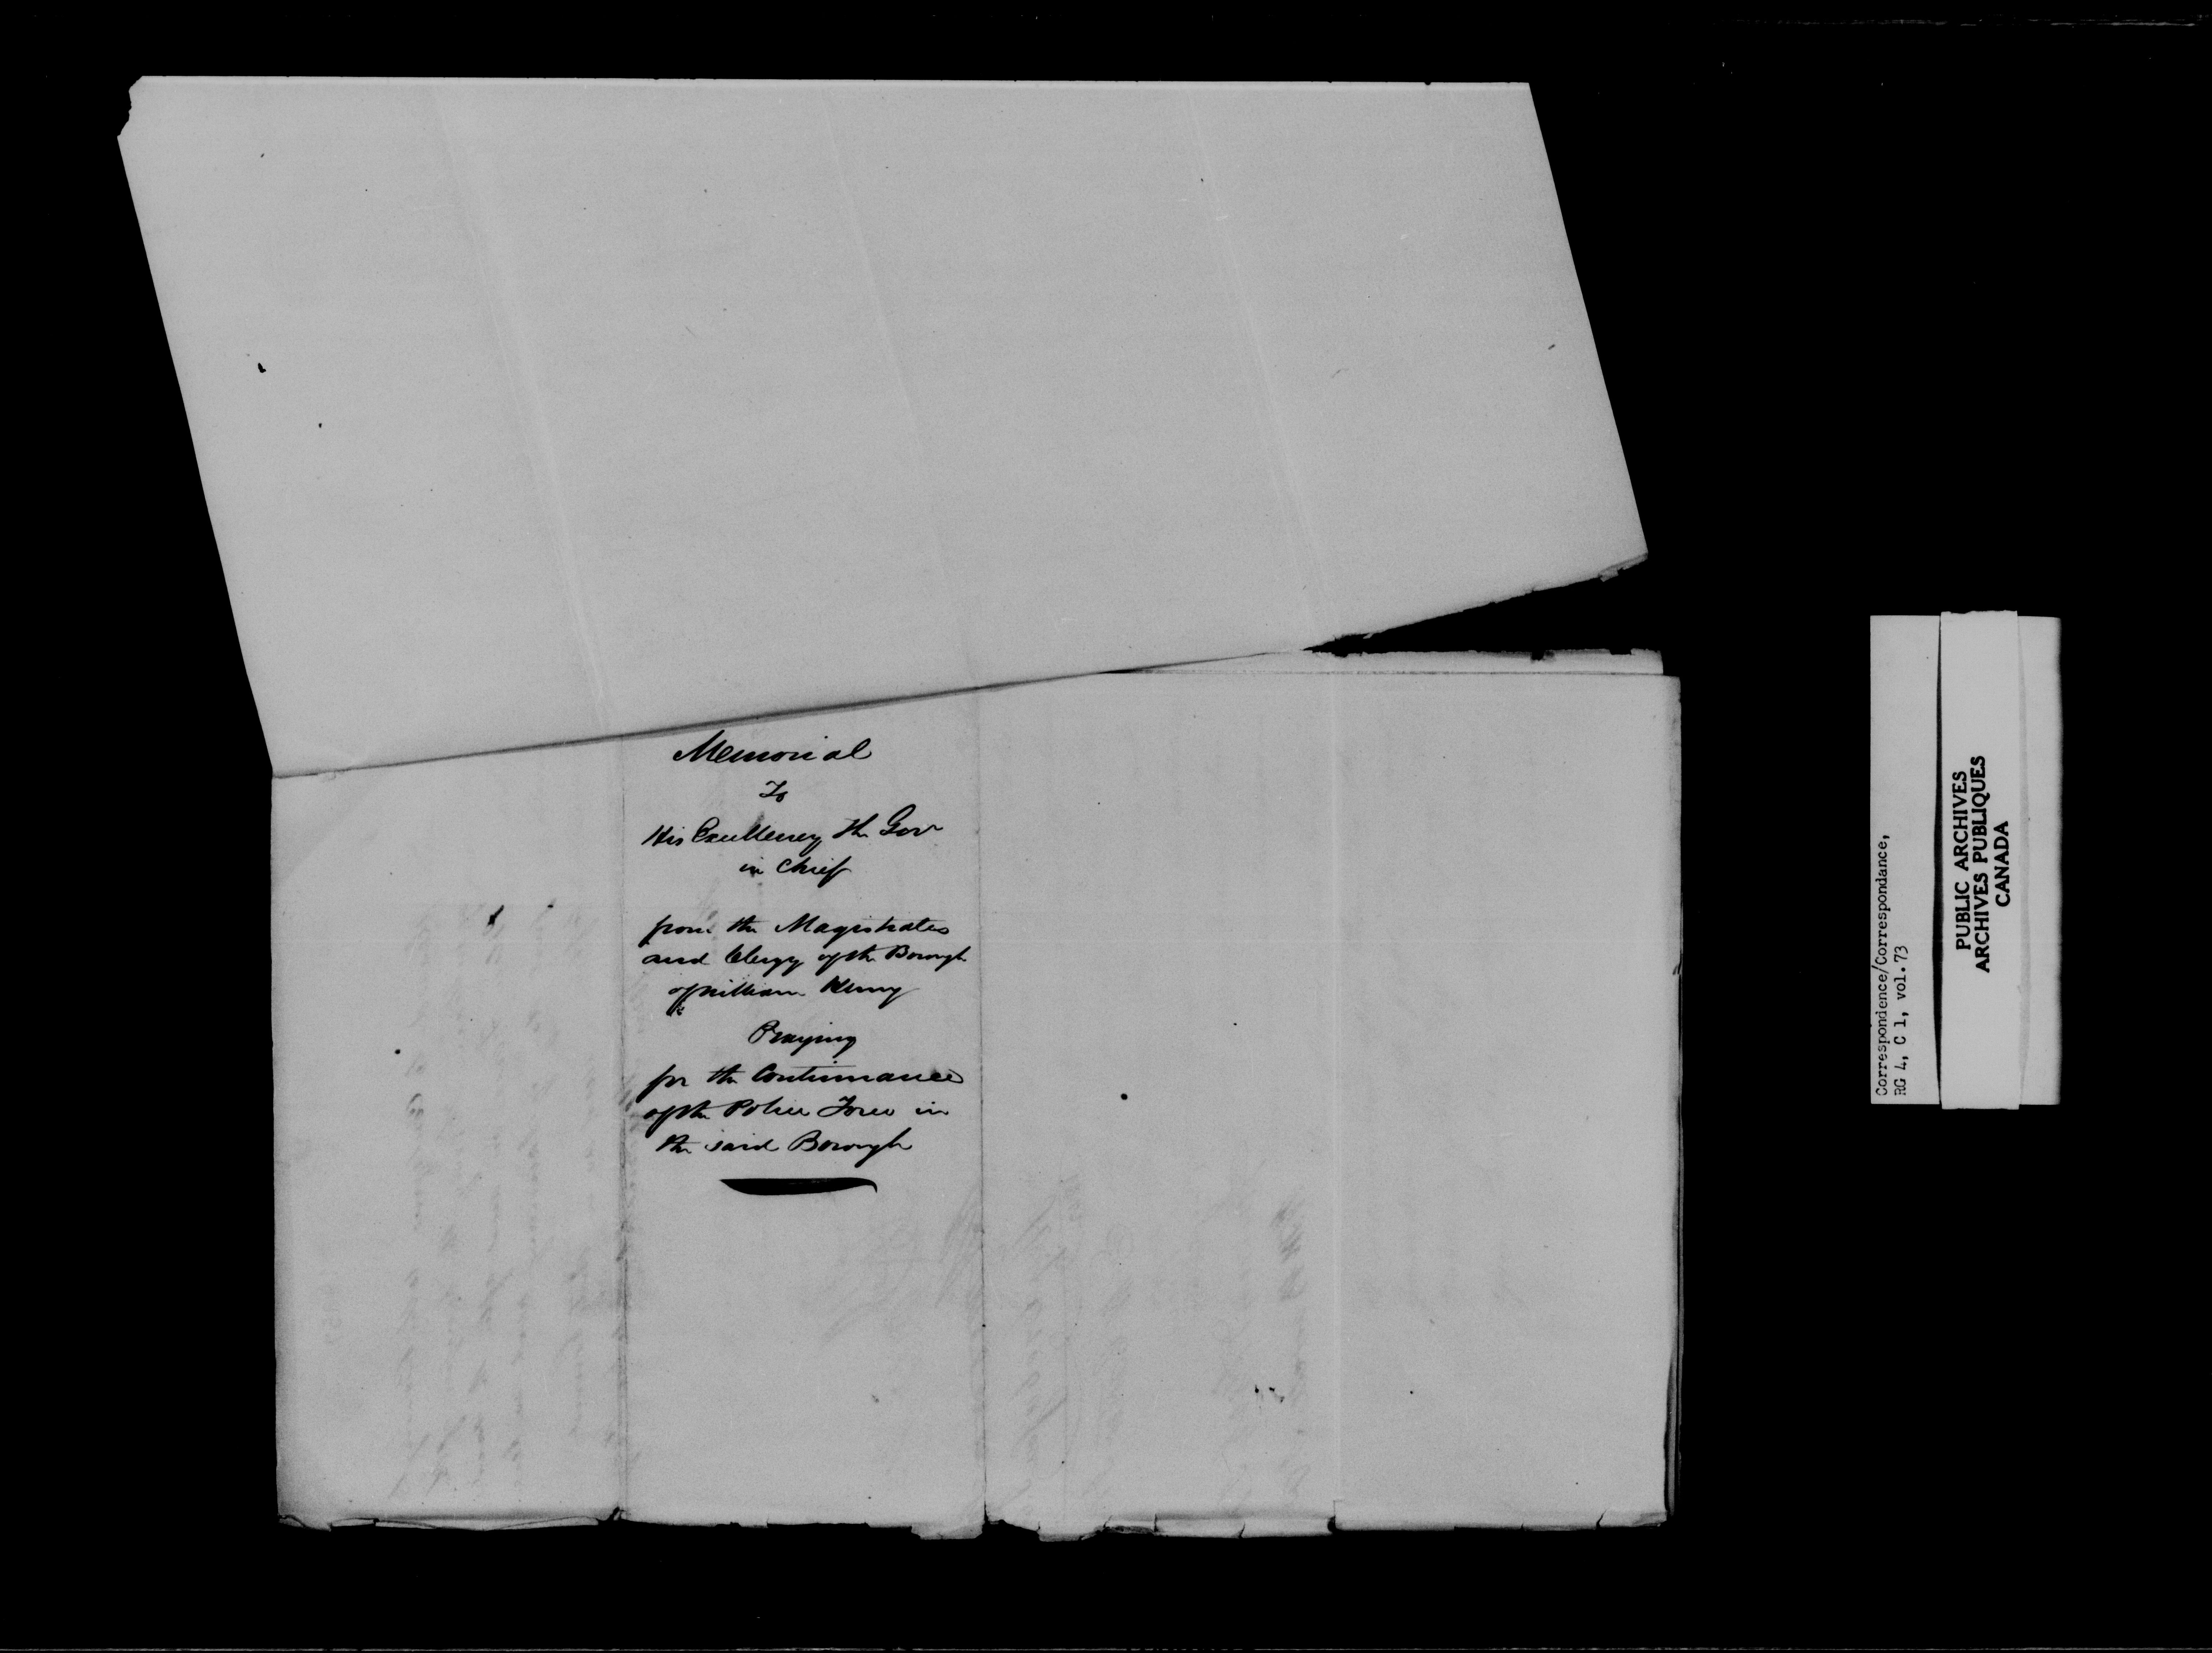 Memorial
To
His Excellency the Gov
in Chief
from the Magistrates
and Clergy of the Borough
of William Henry
Praying
for the Continuance
of the Police Force in
the said Borough
Correspondence/Correspondance,
RG 4, C 1, vol.73
PUBLIC ARCHIVES
ARCHIVES PUBLIQUES
CANADA